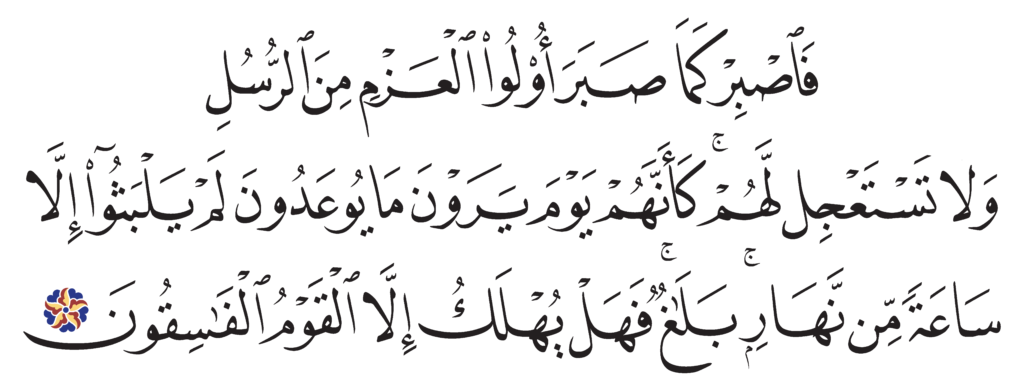 فَٱصْبِرْ كَمَا صَبَرَ أُو۟لُوا۟ ٱلْعَزْمِ مِنَ ٱلرُّسُلِ
وَلَا تَسْتَعْجِل لَّهُمْ ۚ كَأَنَّهُمْ يَوْمَ يَرَوْنَ مَا يُوعَدُونَ لَمْ يَلْبَثُوٓا۟ إِلَّا
سَاعَةً مِّن نَّهَارٍۭ ۚ بَلَٰغٌ ۚ فَهَلْ يُهْلَكُ إِلَّا ٱلْقَوْمُ ٱلْفَٰسِقُونَ